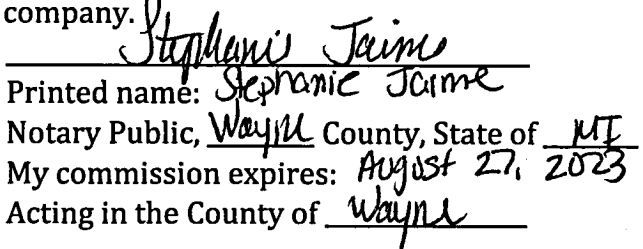 company.
Stephanie Jaime
Printed name: Stephanie Jaime
Notary Public, Wayne County, State of MI
My commission expires: August 27, 2023
Acting in the County of Wayne